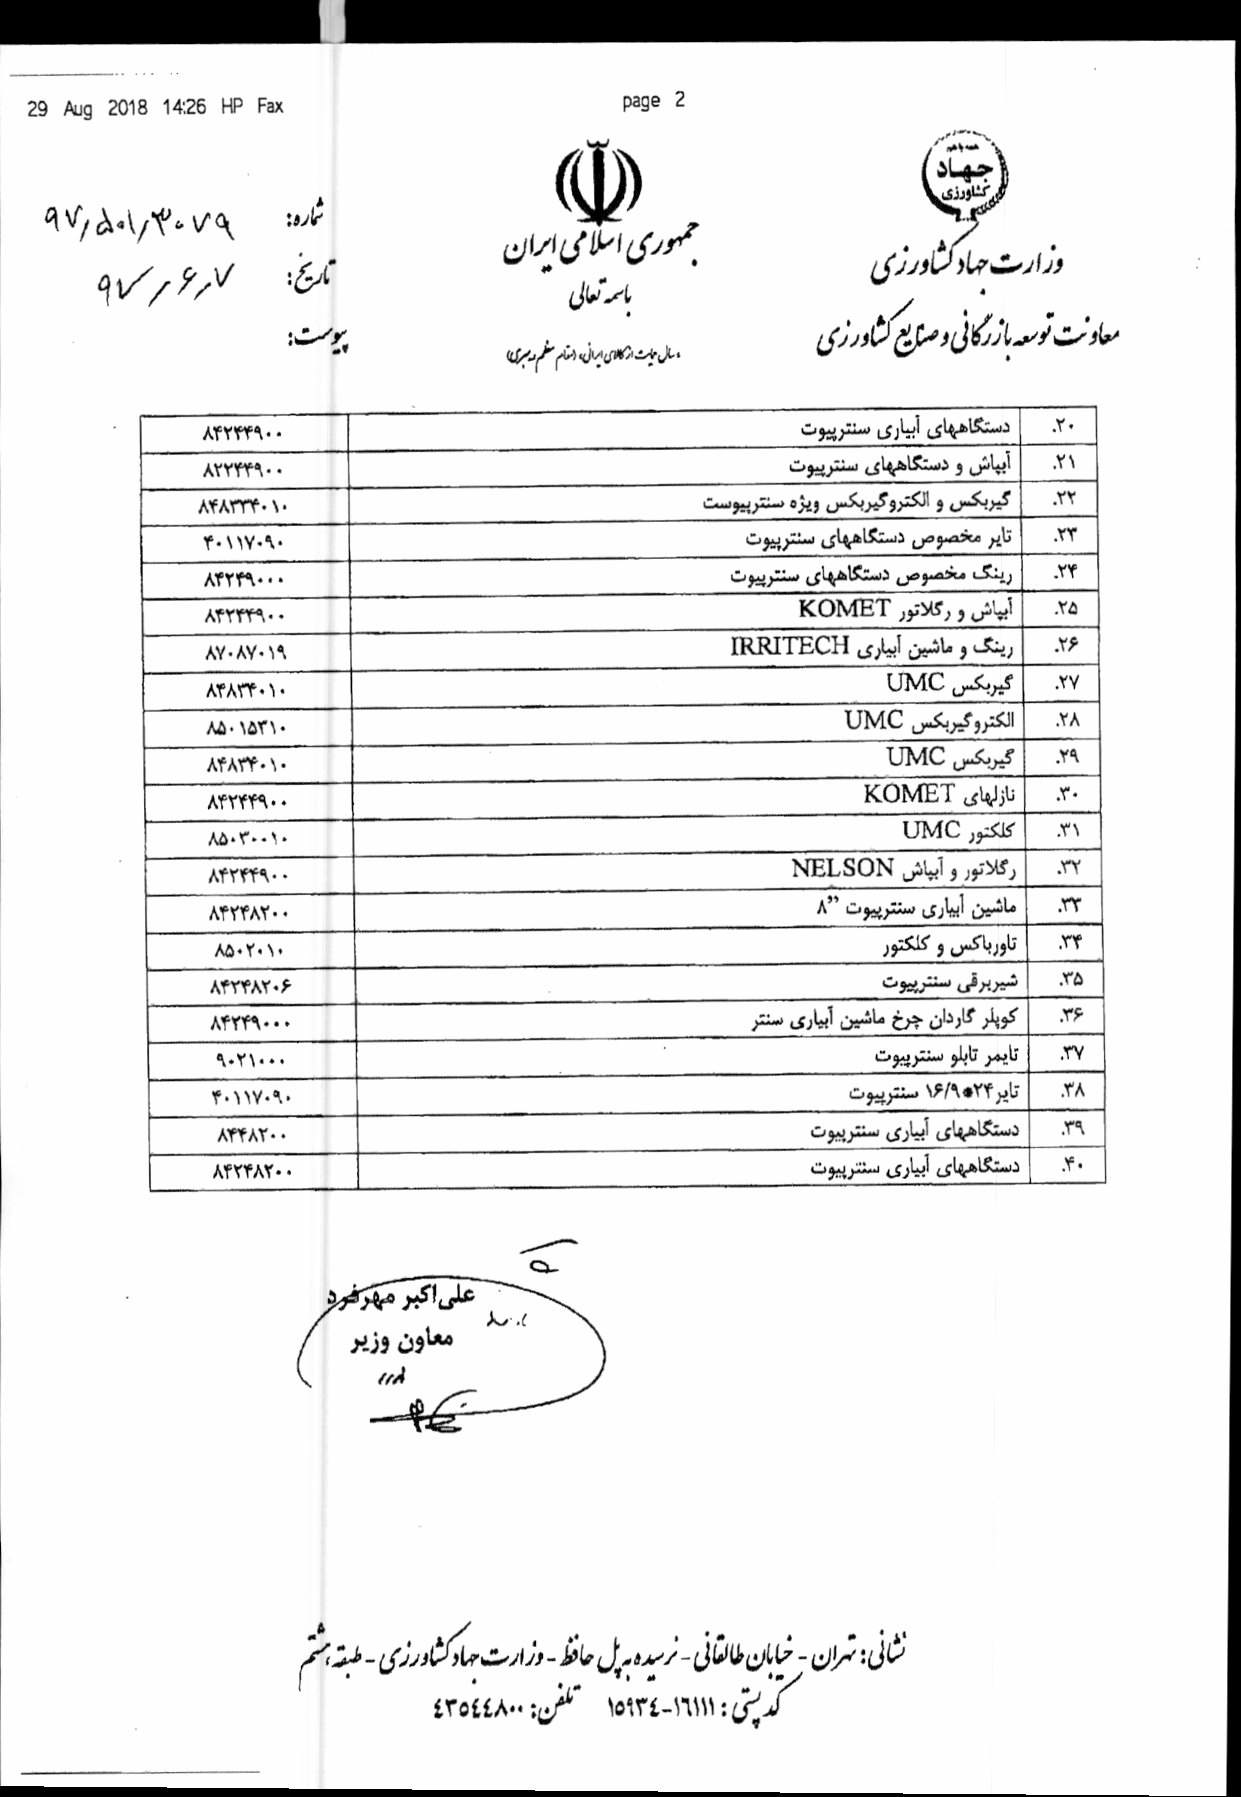 29 Aug 2018 14:26 HP Fax page 2
همه با هم
جهاد
کشاورزی
وزارت جهاد کشاورزی
معاونت توسعه بازرگانی و صنایع کشاورزی
جمهوری اسلامی ایران
باسمه تعالی
«سال حمایت از کالای ایرانی» (مقام معظم رهبری)
شماره: ۹۷/۵۰۱/۳۰۷۹
تاریخ: ۹۷/۶/۷
پیوست:
۲۰. دستگاههای آبیاری سنترپیوت ۸۴۲۴۴۹۰۰
۲۱. آبپاش و دستگاههای سنترپیوت ۸۲۲۴۴۹۰۰
۲۲. گیربکس و الکتروگیربکس ویژه سنترپیوست ۸۴۸۳۳۴۰۱۰
۲۳. تایر مخصوص دستگاههای سنترپیوت ۴۰۱۱۷۰۹۰
۲۴. رینگ مخصوص دستگاههای سنترپیوت ۸۴۲۴۹۰۰۰
۲۵. آبپاش و رگلاتور KOMET ۸۴۲۴۴۹۰۰
۲۶. رینگ و ماشین آبیاری IRRITECH ۸۷۰۸۷۰۱۹
۲۷. گیربکس UMC ۸۴۸۳۴۰۱۰
۲۸. الکتروگیربکس UMC ۸۵۰۱۵۳۱۰
۲۹. گیربکس UMC ۸۴۸۳۴۰۱۰
۳۰. نازلهای KOMET ۸۴۲۴۴۹۰۰
۳۱. کلکتور UMC ۸۵۰۳۰۰۱۰
۳۲. رگلاتور و آبپاش NELSON ۸۴۲۴۴۹۰۰
۳۳. ماشین آبیاری سنترپیوت ”۸ ۸۴۲۴۸۲۰۰
۳۴. تاورباکس و کلکتور ۸۵۰۲۰۱۰
۳۵. شیربرقی سنترپیوت ۸۴۲۴۸۲۰۶
۳۶. کوپلر گاردان چرخ ماشین آبیاری سنتر ۸۴۲۴۹۰۰۰
۳۷. تایمر تابلو سنترپیوت ۹۰۲۱۰۰۰
۳۸. تایر ۲۴*۱۶/۹ سنترپیوت ۴۰۱۱۷۰۹۰
۳۹. دستگاههای آبیاری سنترپیوت ۸۴۴۸۲۰۰
۴۰. دستگاههای آبیاری سنترپیوت ۸۴۲۴۸۲۰۰
علی‌اکبر مهرفرد
معاون وزیر
نشانی: تهران - خیابان طالقانی - نرسیده به پل حافظ - وزارت جهاد کشاورزی - طبقه هشتم
کد پستی: ۱۶۱۱۱-۱۵۹۳۴ تلفن: ۴۳۵۴۴۸۰۰